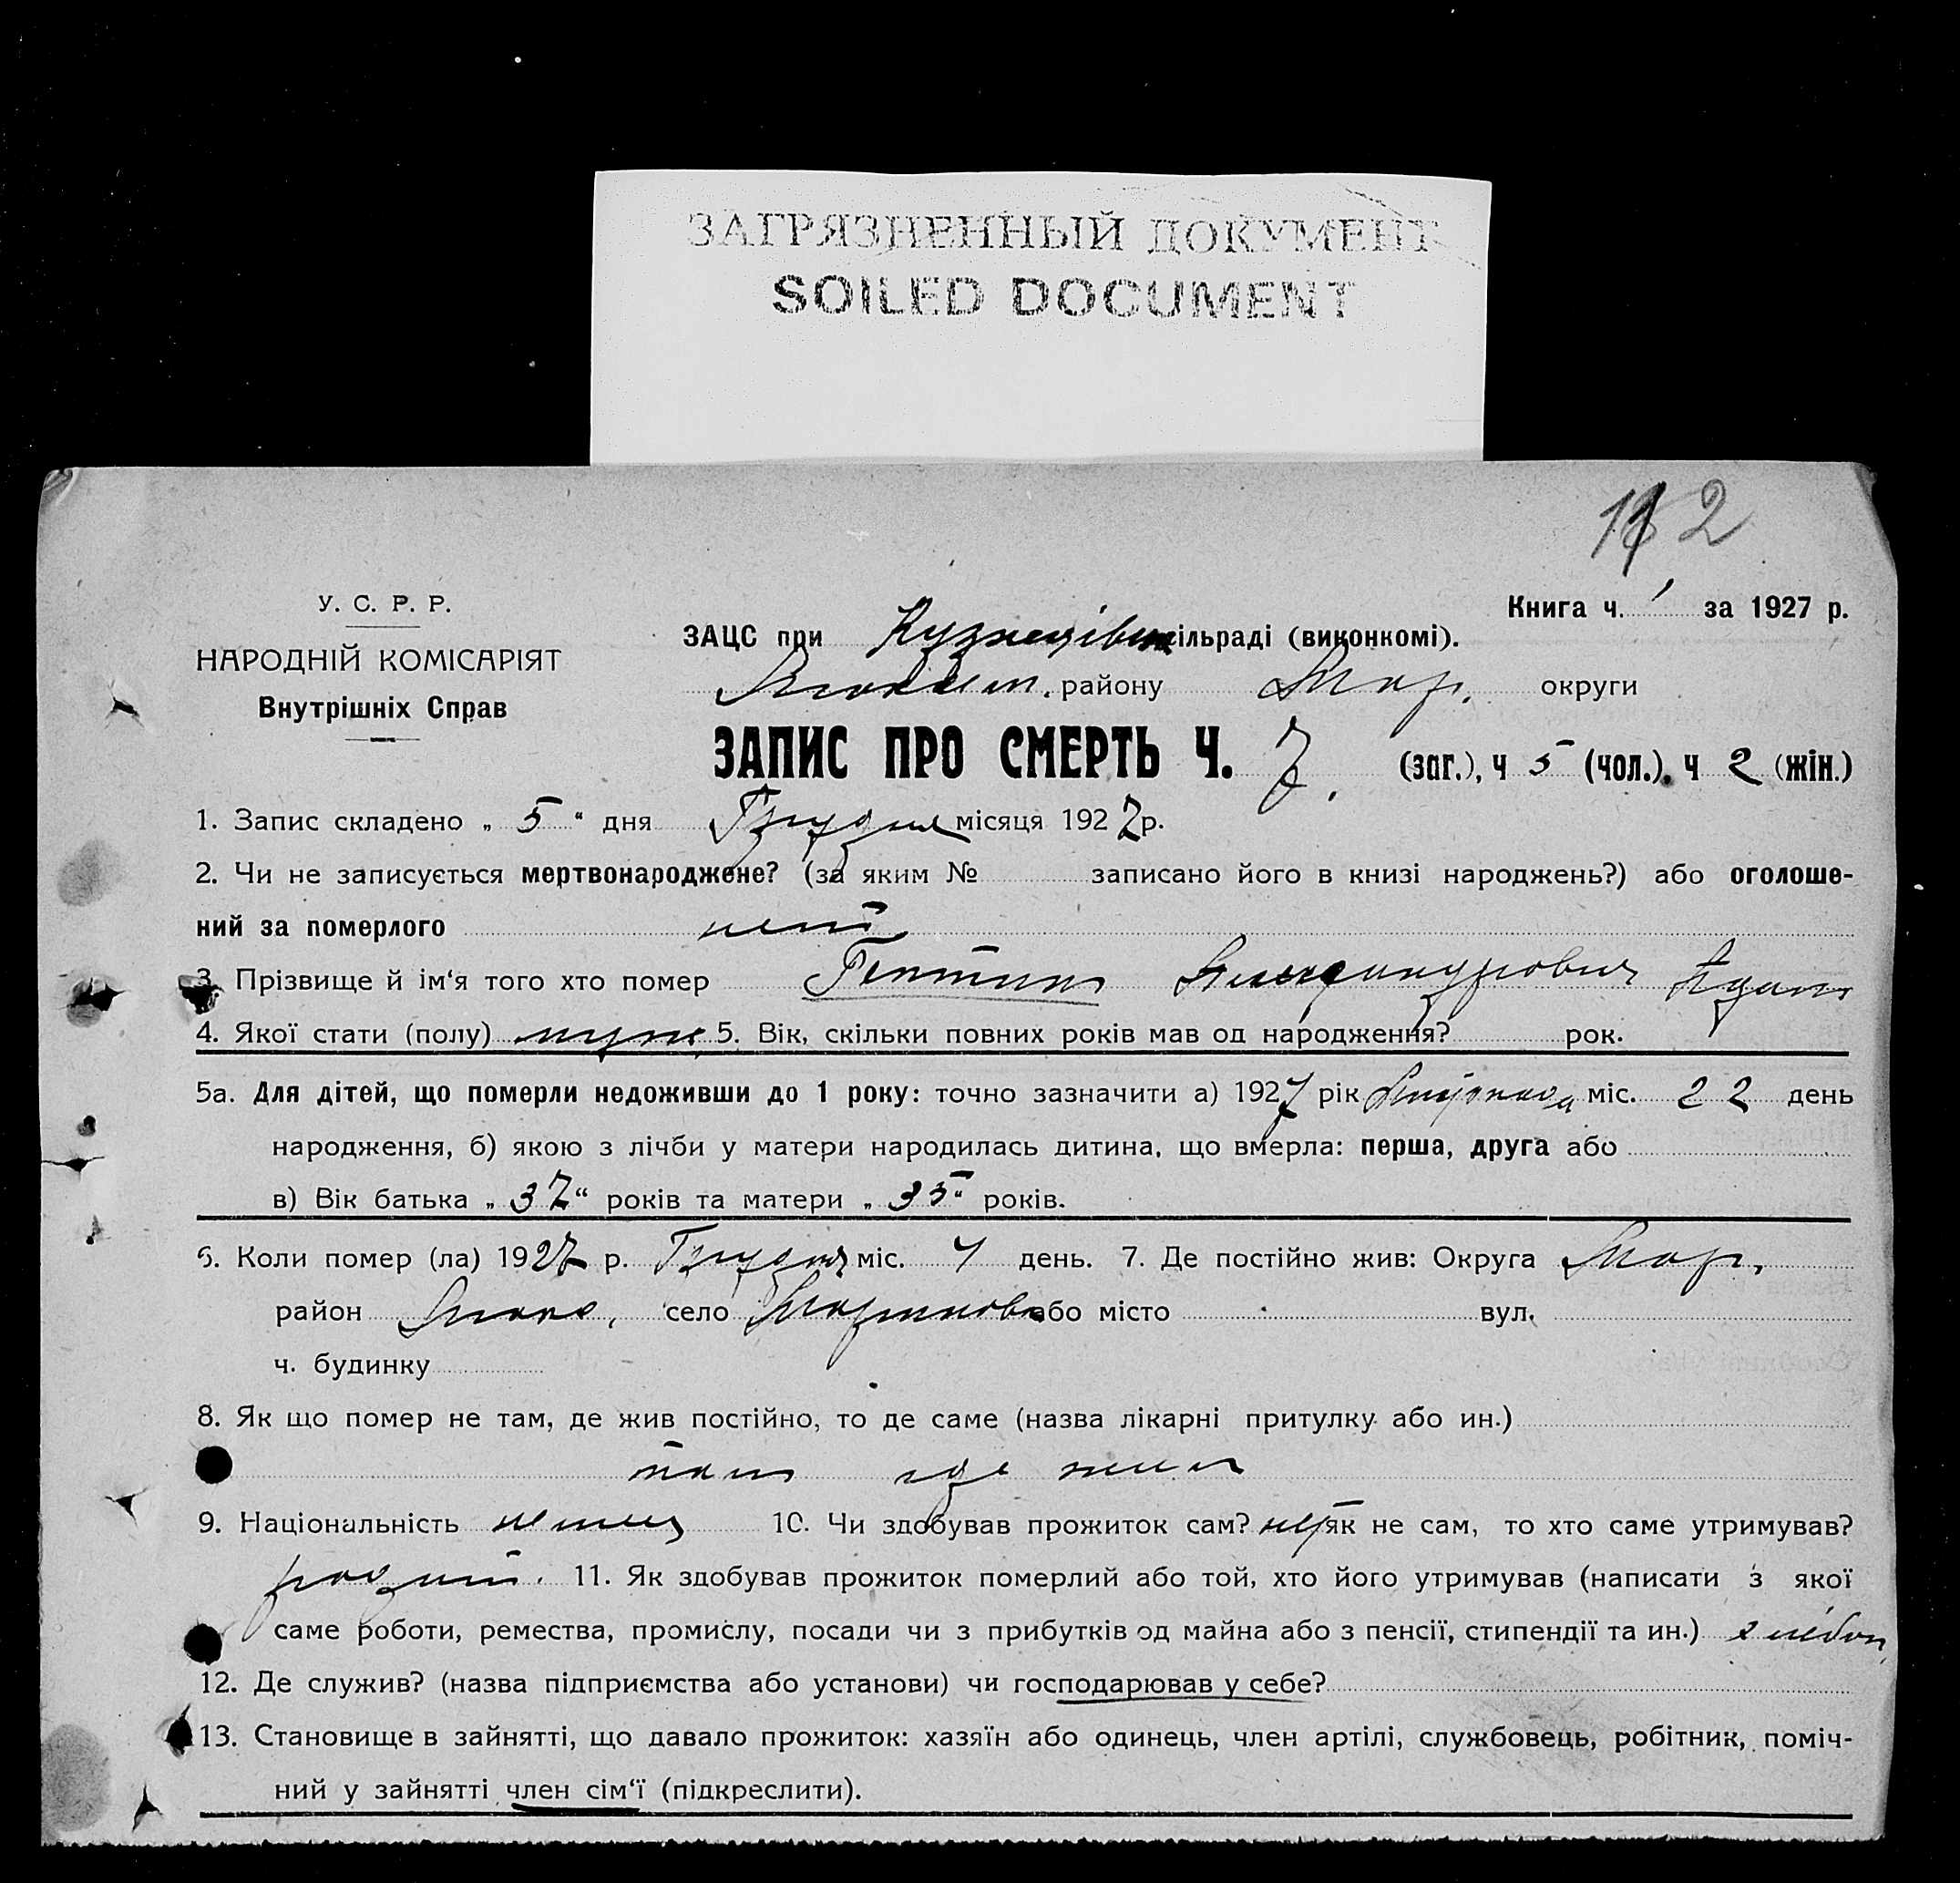 ЗАГРЯЗНЕННЫЙ ДОКУМЕНТ
SOILED DOCUMENT
2
У. С. Р. Р.
НАРОДНІЙ КОМІСАРІЯТ
Внутрішніх Справ
Книга ч. 1 за 1927 р.
ЗАЦС при Кузнецівськ сільраді (виконкомі).
району Мар. округи
ЗАПИС ПРО СМЕРТЬ Ч. 7. (заг.), ч 5 (чол.), ч 2 (жін.)
1. Запис складено „ 5 “ дня Грудня місяця 1927 р.
2. Чи не записується мертвонароджене? (за яким № записано його в книзі народжень?) або оголоше-
ний за померлого нет
3. Прізвище й ім‘я того хто помер Гептинг Александрович Адам
4. Якої стати (полу) муж. 5. Вік, скільки повних років мав од народження? рок.
5а. Для дітей, що померли недоживши до 1 року: точно зазначити а) 1927 рік міс. 22 день
народження, б) якою з лічби у матери народилась дитина, що вмерла: перша, друга або
в) Вік батька „ 37 “ років та матери „ 35 “ років.
6. Коли помер (ла) 1927 р. Грудня міс. 4 день. 7. Де постійно жив: Округа Мар.
район село або місто вул.
ч. будинку
8. Як що помер не там, де жив постійно, то де саме (назва лікарні притулку або ин.)
там где жил
9. Національність немец 10. Чи здобував прожиток сам? ні як не сам, то хто саме утримував?
родит. 11. Як здобував прожиток померлий або той, хто його утримував (написати з якої
саме роботи, ремества, промислу, посади чи з прибутків од майна або з пенсії, стипендії та ин.) хлібор
12. Де служив? (назва підприємства або установи) чи господарював у себе?
13. Становище в зайнятті, що давало прожиток: хазяїн або одинець, член артілі, службовець, робітник, поміч-
ний у зайнятті член сім‘ї (підкреслити).